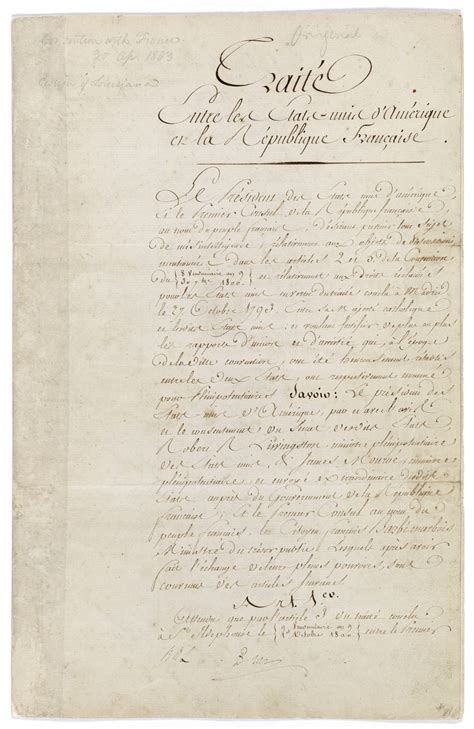 Convention with France
30 Ap. 1803
Original
Traité
Entre les Etats-unis d'Amérique
et la République Française.
Le Président des Etats unis d'amérique
et le Premier Consul de la République française
au nom du peuple français desirant prevenir tout sujet
de mésintelligence relativement aux objets de discussion
mentionnés dans les articles 2 et 5 de la Convention
du (8 Vendemiaire an 9
30 7bre 1800)
et relativement aux droits reclamés
par les Etats unis en vertu du traité conclu à Madrid
le 27 Octobre 1795 Entre Sa Majesté catholique
et lesdits Etats unis; et voulant fortifier de plus en plus
les rapports d'union et d'amitié, qui à l'époque
de la dite convention, ont été heureusement rétablis
entre les deux Etats, ont respectivement nommé
pour Plénipotentiaires Savoir: Le président des
Etats-unis d'Amérique, par et avec l'avis
et le consentement du Senat desdits Etats
Robert R Livingston ministre plénipotentiaire
des Etats unis, & James Monroe, ministre
plénipotentiaire et envoyé extraordinaire desdits
Etats auprès du Gouvernement de la République
française; & le premier Consul au nom du
peuple français, le Citoyen François Barbé Marbois
Ministre du trésor public Lesquels après avoir
fait l'échange de leurs pleins pouvoirs, sont
convenus des articles suivants
Art. 1er.
Attendu que par l'article 3 du traité conclu
à St Ildephonse le (9 Vendemiaire an 9
1er Octobre 1800) entre le Premier